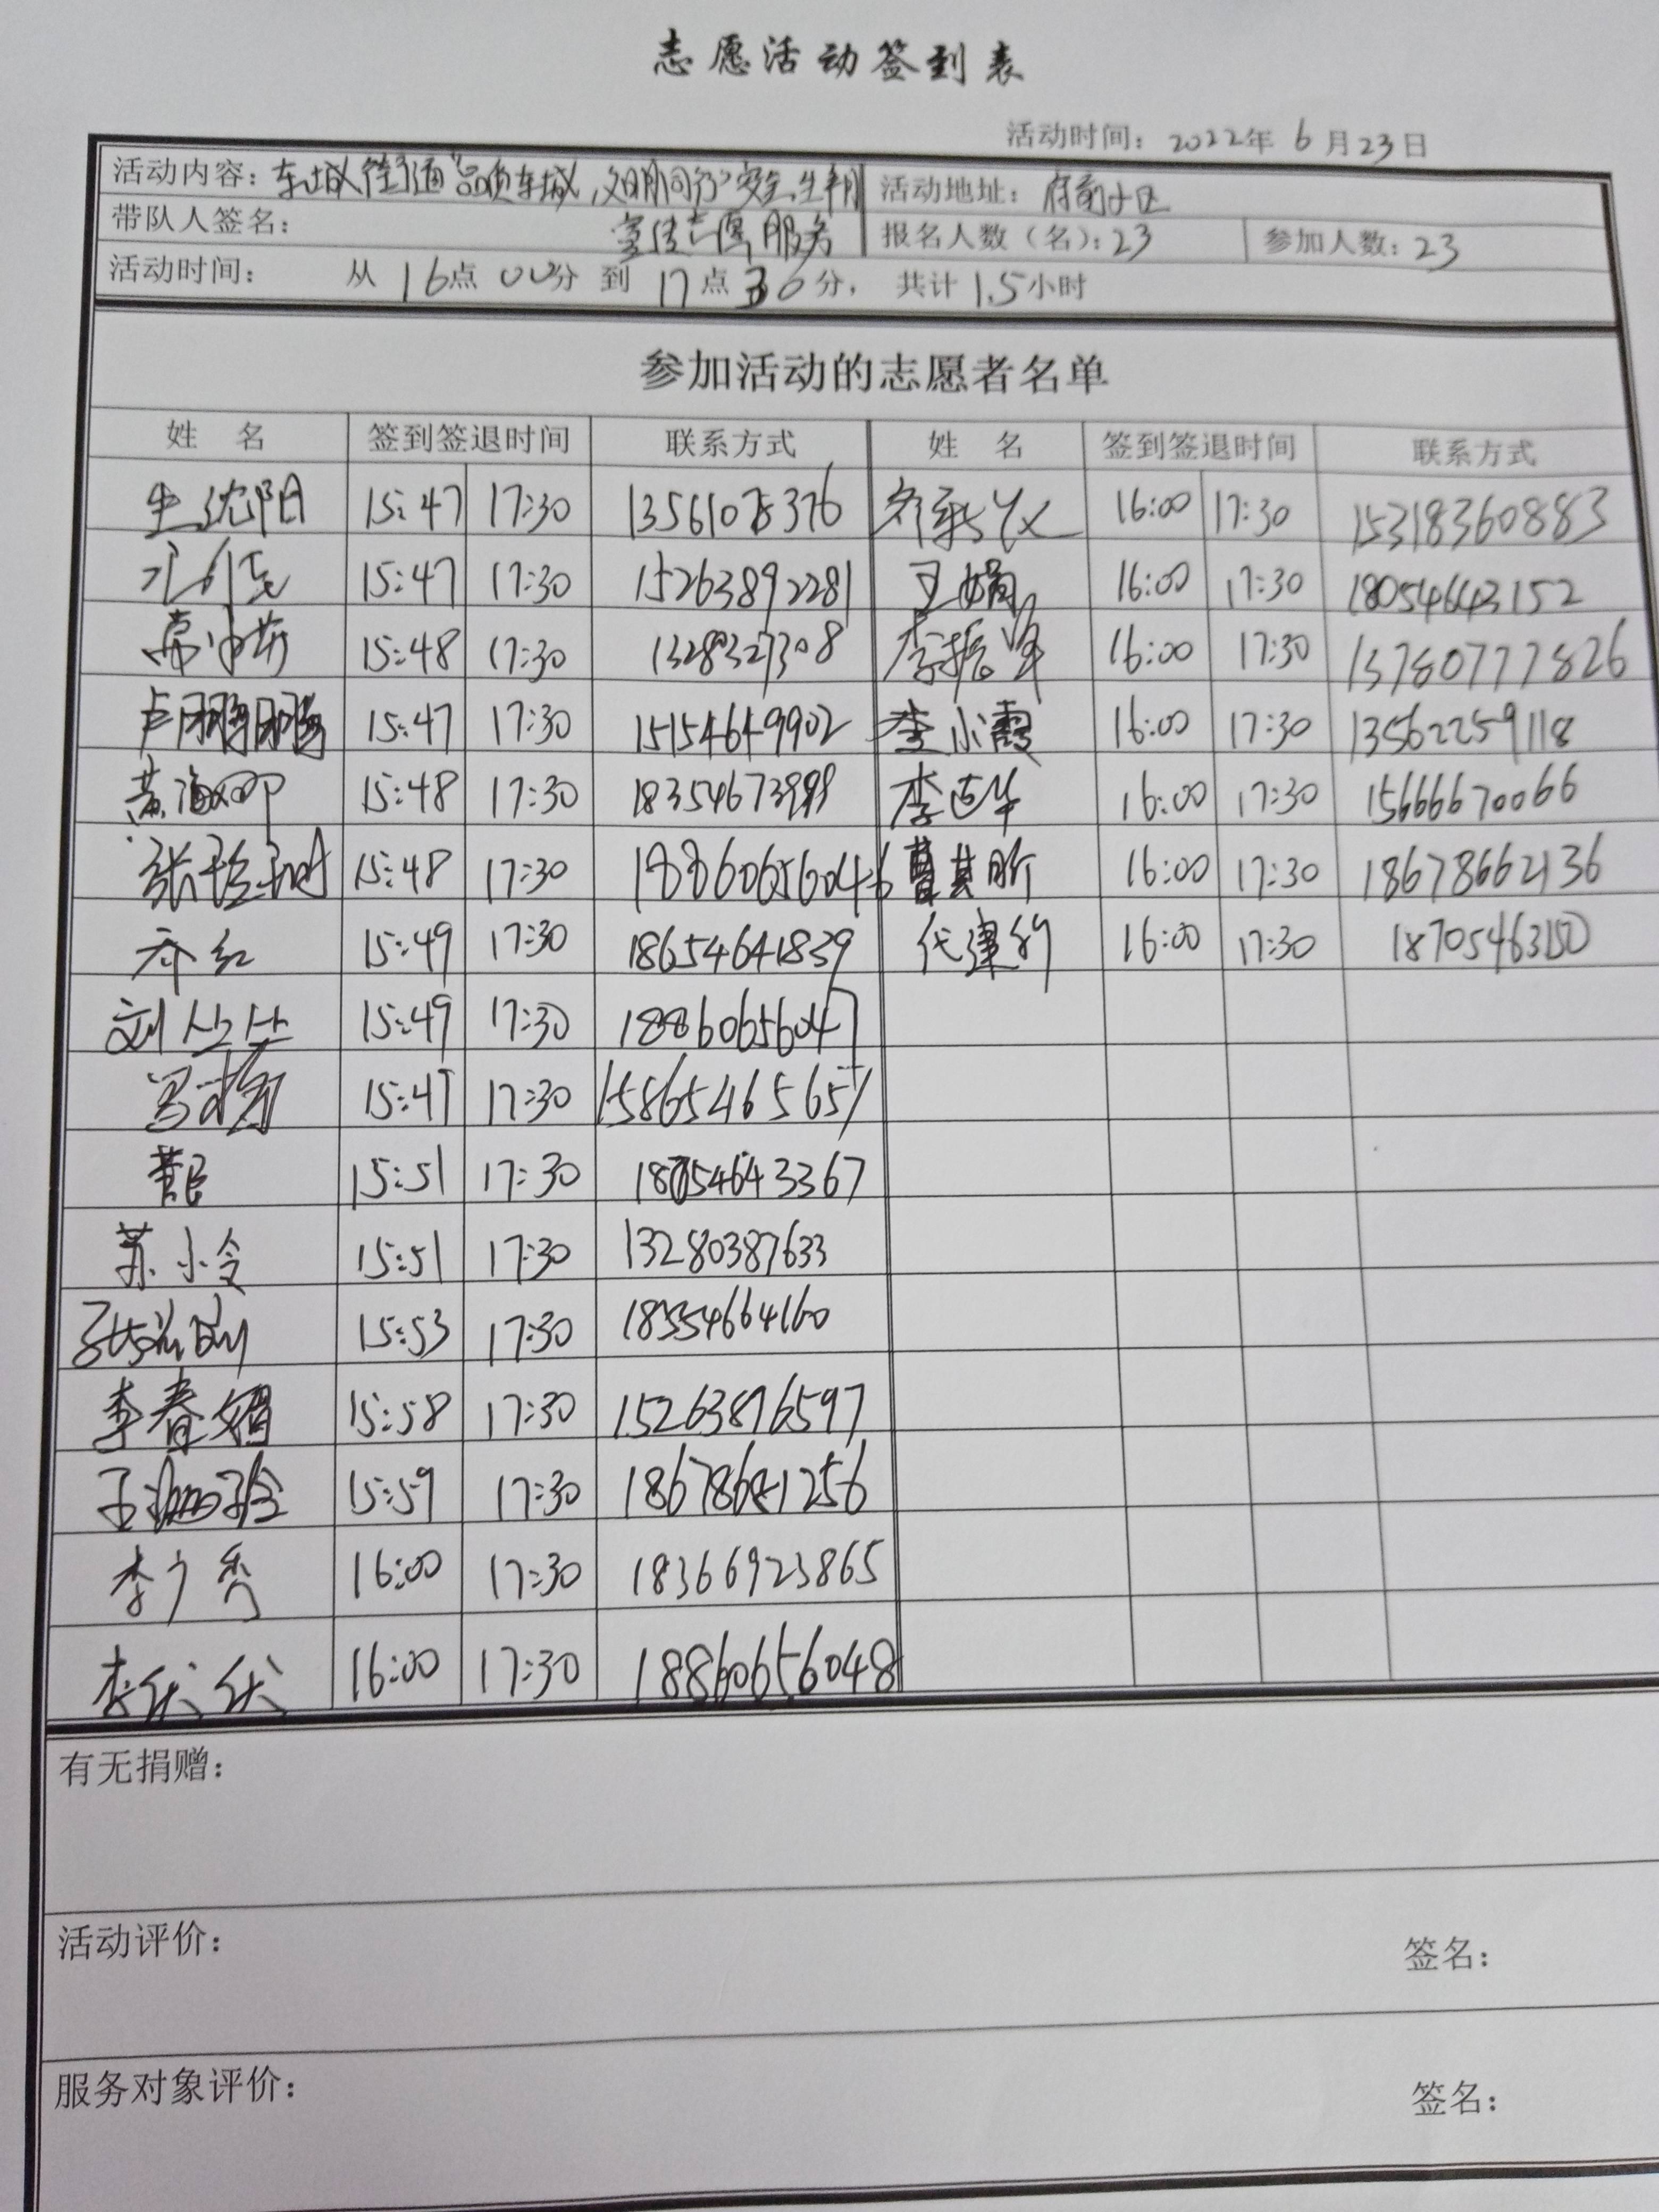 志愿活动签到表
活动时间：2022年6月23日
活动内容：东城街道"品质东城，文明同行"安全生产月 活动地址：府前小区
带队人签名： 宣传志愿服务 报名人数（名）：23 参加人数：23
活动时间： 从16点00分到17点30分， 共计1.5小时
参加活动的志愿者名单
姓 名 签到签退时间 联系方式 姓 名 签到签退时间 联系方式
生沈阳 15:47 17:30 16:00 17:30 15318360883
15:47 17:30 15263892281 王娟 16:00 17:30 18054643152
15:48 17:30 1328327308 李振军 16:00 17:30 13780777826
卢鹏鹏 15:47 17:30 15154649902 李小霞 16:00 17:30 13562259118
黄海娜 15:48 17:30 李连华 16:00 17:30 15666670066
15:48 17:30 18860656046 曹其昕 16:00 17:30 18678662136
乔红 15:49 17:30 18654641839 16:00 17:30 18705463150
刘丛丛 15:49 17:30 18860656047
15:47 17:30
15:51 17:30 18054643367
苏小令 15:51 17:30 13280387633
15:53 17:30 18554664160
李春娟 15:58 17:30 15263876597
15:59 17:30
李广秀 16:00 17:30 18366923865
李伏伏 16:00 17:30 18860656048
有无捐赠：
活动评价： 签名：
服务对象评价： 签名：